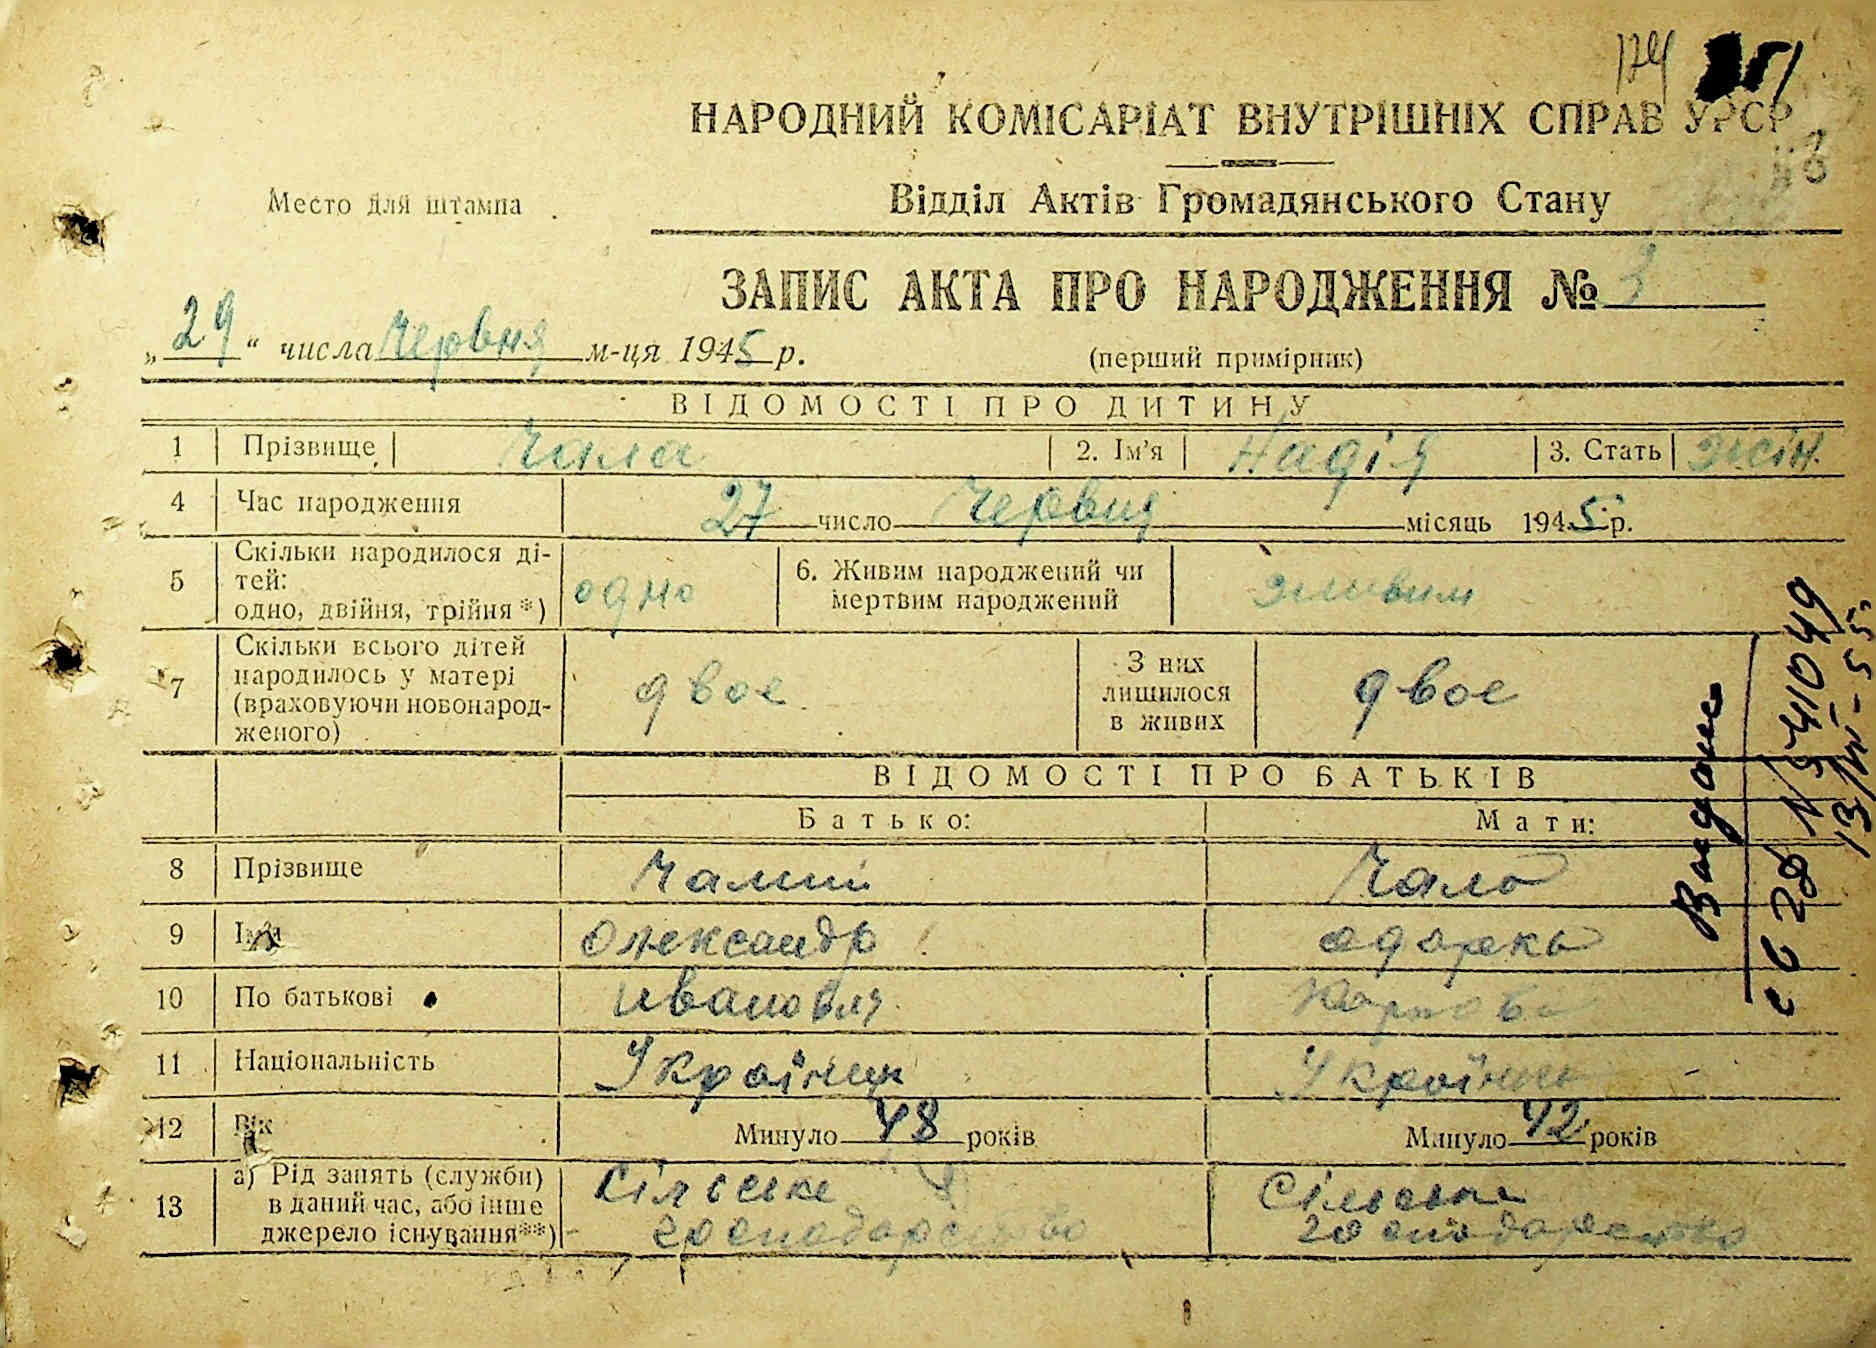 174
НАРОДНИЙ КОМІСАРІАТ ВНУТРІШНІХ СПРАВ УРСР
Место для штампа
Відділ Актів Громадянського Стану
ЗАПИС АКТА ПРО НАРОДЖЕННЯ № 3
„29“ числа Червня м-ця 1945 р.
(перший примірник)
ВІДОМОСТІ ПРО ДИТИНУ
1 Прізвище Чала 2. Ім'я Надія 3. Стать жін.
4 Час народження 27 число Червня місяць 1945 р.
5 Скільки народилося ді-
тей:
одно, двійня, трійня *) одно 6. Живим народжений чи
мертвим народжений живим
7 Скільки всього дітей
народилось у матері
(враховуючи новонарод-
женого) двое З них
лишилося
в живих двое
ВІДОМОСТІ ПРО БАТЬКІВ
Батько: Мати:
8 Прізвище Чалий Чала
9 Ім'я Олександр Одарка
10 По батькові Иванович
11 Національність Українец Українка
12 Вік Минуло 48 років Минуло 42 років
13 а) Рід занять (служби)
в даний час, або інше
джерело існування**) Сільське
господарство Сільське
господарство
Видане
13/III-55